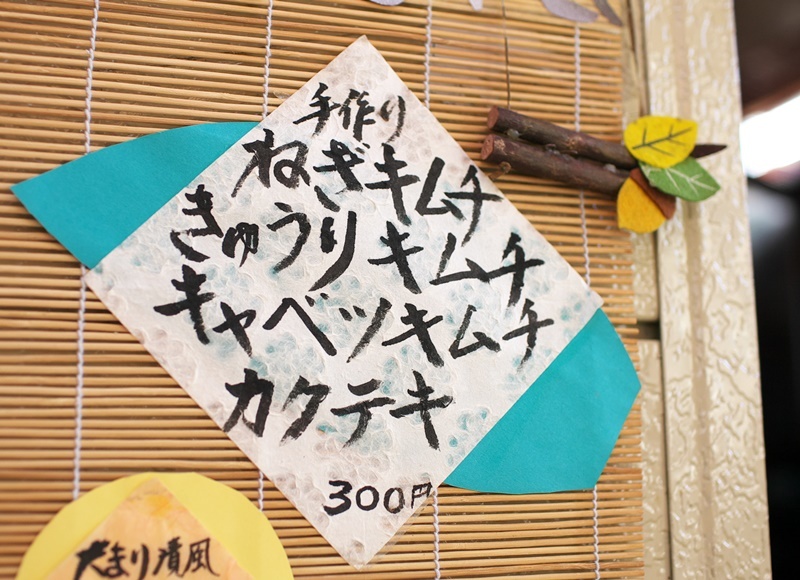 手作り
ねぎキムチ
きゅうりキムチ
キャベツキムチ
カクテキ
300円
たまり漬風